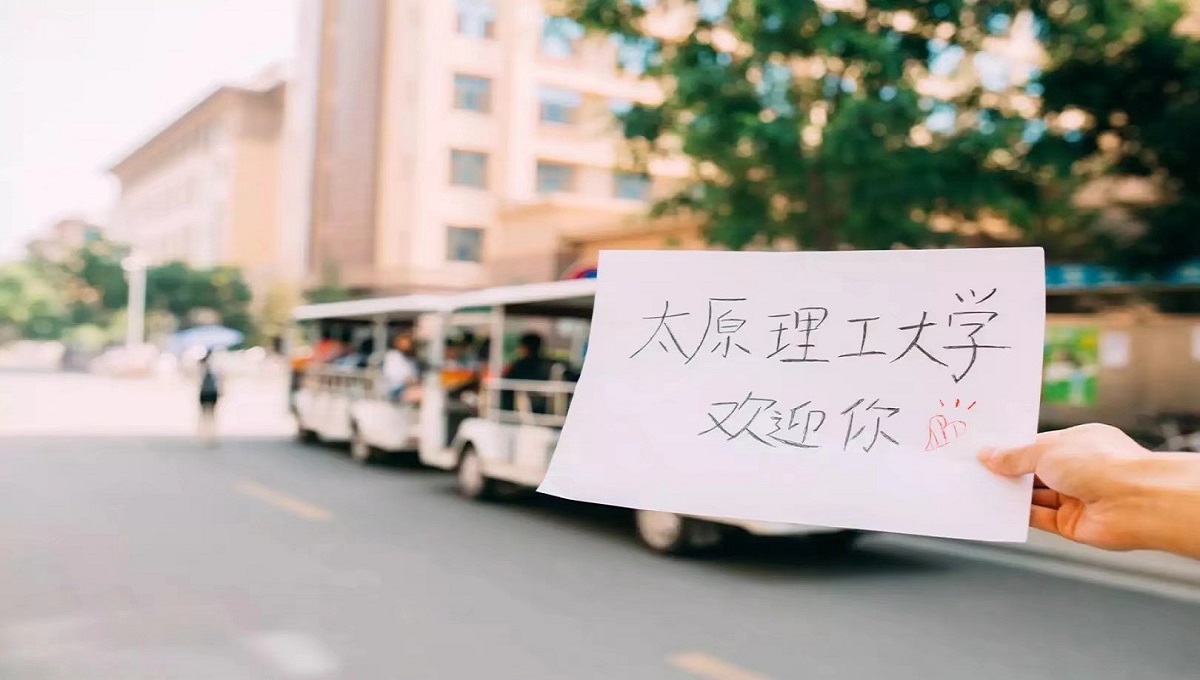 太原理工大学
欢迎你